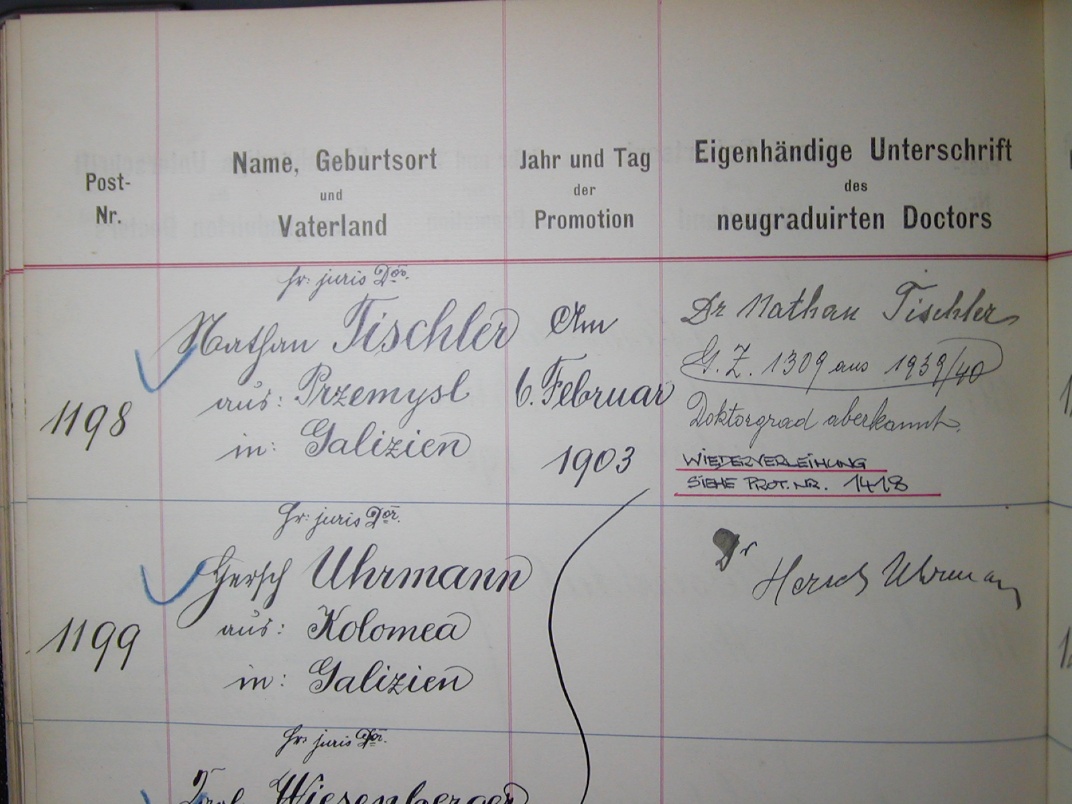 Post-
Nr.
Name, Geburtsort
und
Vaterland
Jahr und Tag
der
Promotion
Eigenhändige Unterschrift
des
neugraduirten Doctors
1198
juris Dor.
Nathan Tischler
aus: Przemysl
in: Galizien
Am
6. Februar
1903
Dr Nathan Tischler
G. Z. 1309 aus 1939/40
Doktorgrad aberkannt.
WIEDERVERLEIHUNG
SIEHE PROT. NR. 1418
1199
juris Dor.
Hersch Uhrmann
aus: Kolomea
in: Galizien
Dr
Hersch Uhrmann
juris Dor.
Wiesenberger